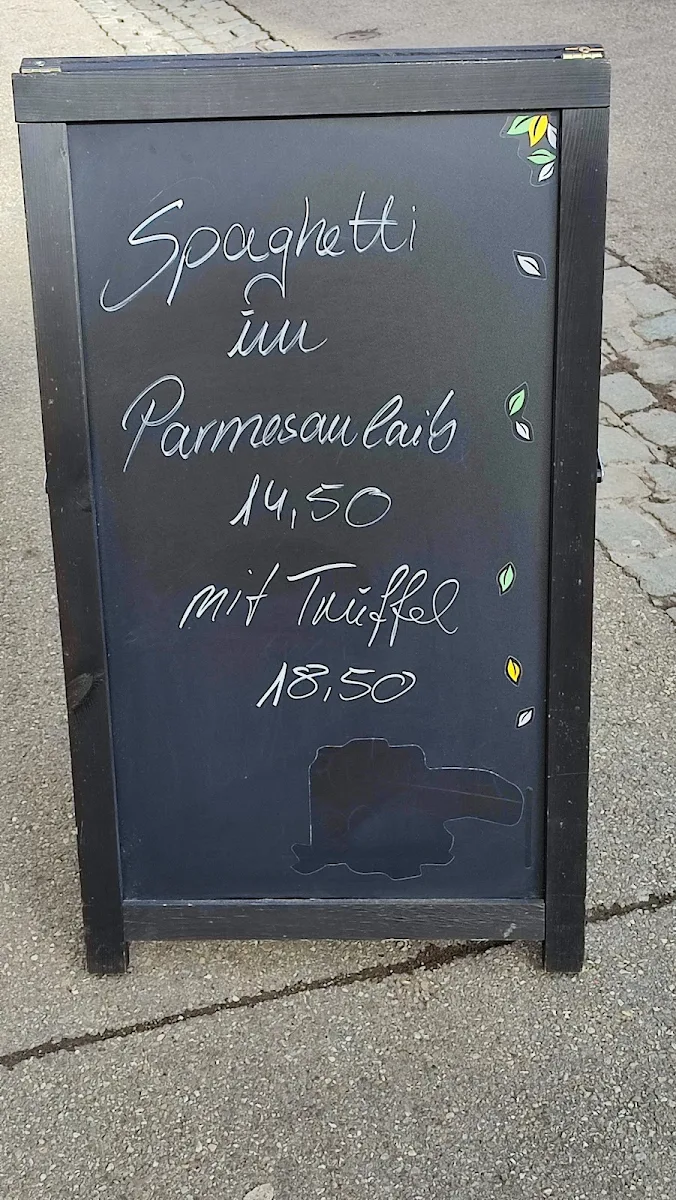 Spaghetti
im
Parmesanlaib
14,50
mit Trüffel
18,50